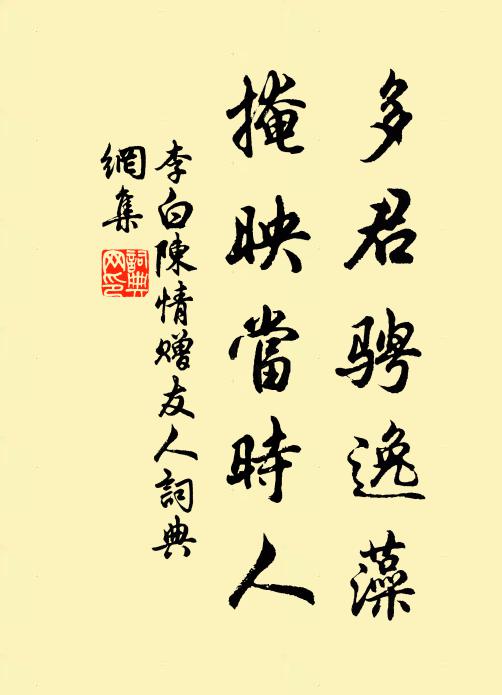 多君骋逸藻
掩映當時人
李白陳情赠友人詞典
網集
詞典
网印